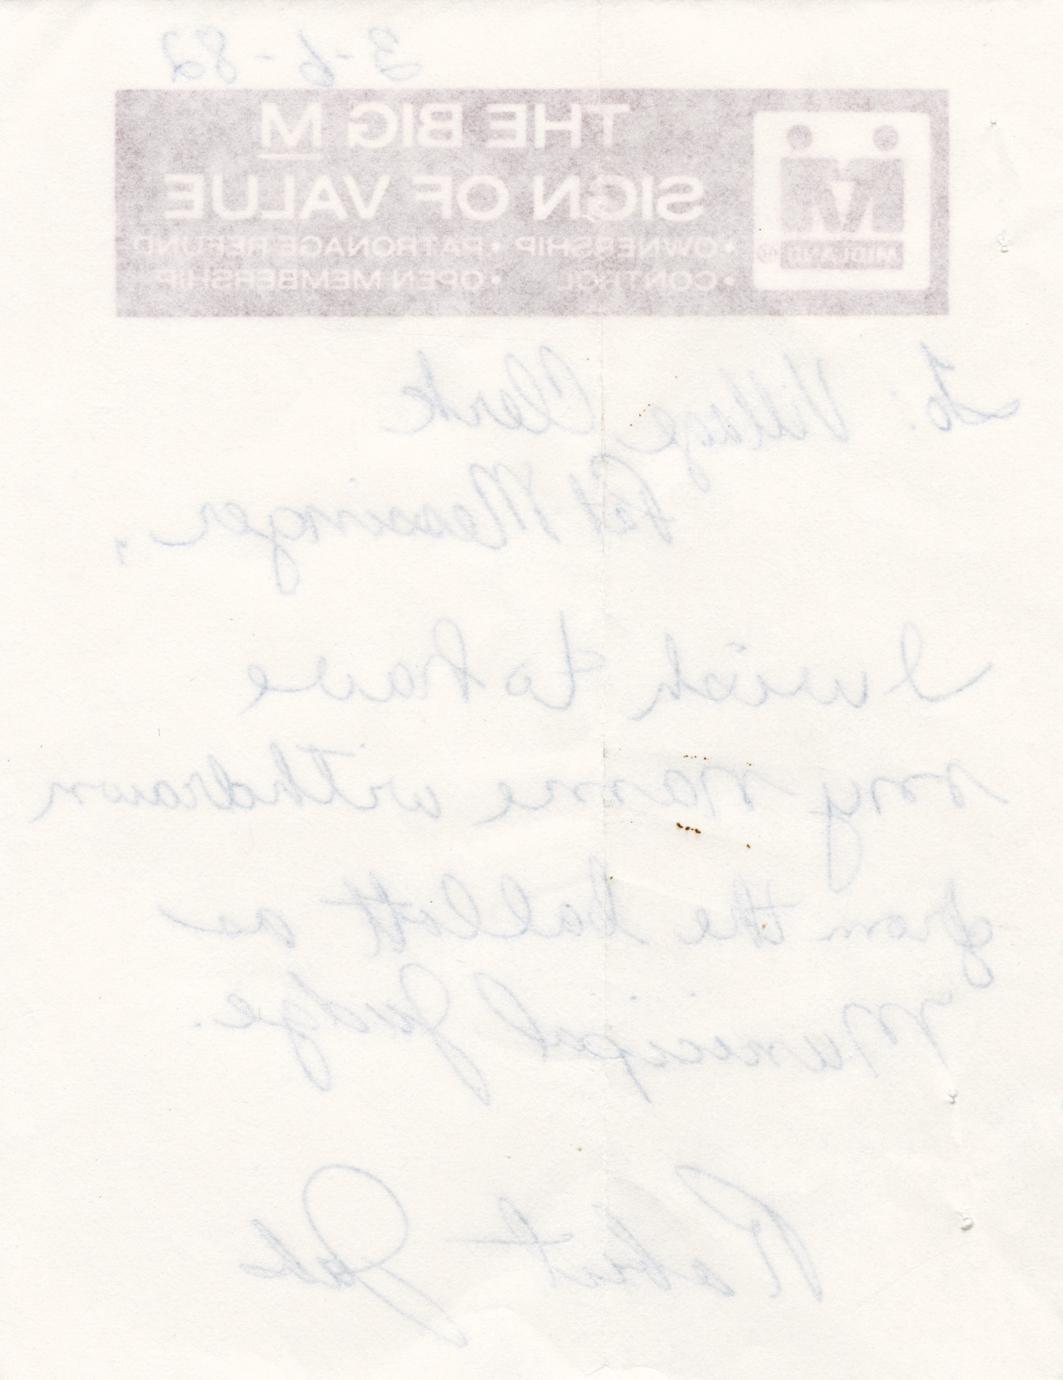 3-6-82
THE BIG M
SIGN OF VALUE
• OWNERSHIP • PATRONAGE REFUND
• CONTROL • OPEN MEMBERSHIP
MIDLAND
To: Village Clerk
Pat Messinger,
I wish to have
my name withdrawn
from the ballott as
Municipal Judge.
Robert